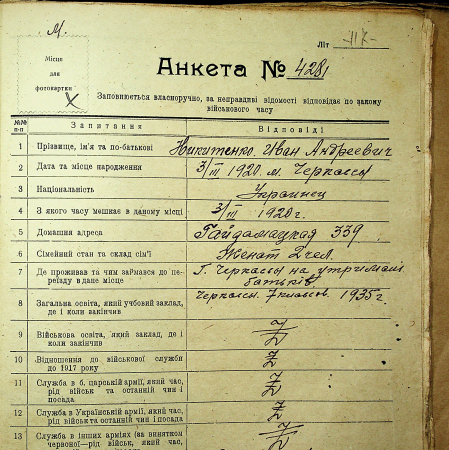 М.
Літ "Н-
Місце
для
фотокартки
Анкета № 4281
Заповнюється власноручно, за неправдиві відомості відповідає по закону
військового часу
№№ п-п Запитання Відповіді
1 Прізвище, ім'я та по-батькові Никитенко Иван Андреевич
2 Дата та місце народження 3/III 1920. м. Черкассы
3 Національність Украинец
4 З якого часу мешкає в даному місці 3/III 1920 г.
5 Домашня адреса Гайдамацкая 339.
6 Сімейний стан та склад сім'ї Женат 2 чел.
7 Де проживав та чим займався до пе- Г. Черкассы на утримані
реїзду в дане місце батьків
8 Загальна освіта, який учбовий заклад, Черкассы. 7 классов. 1935 г.
де і коли закінчив
9 Військова освіта, який заклад, де і Z
коли закінчив
10 Відношення до військової служби Z
до 1917 року
11 Служба в б. царській армії, який час, Z
рід військ та останній чин і
посада
12 Служба в Українській армії, який час, Z
рід військ та останній чин і посада
13 Служба в інших арміях (за винятком Z
червоної—рід військ, який час,